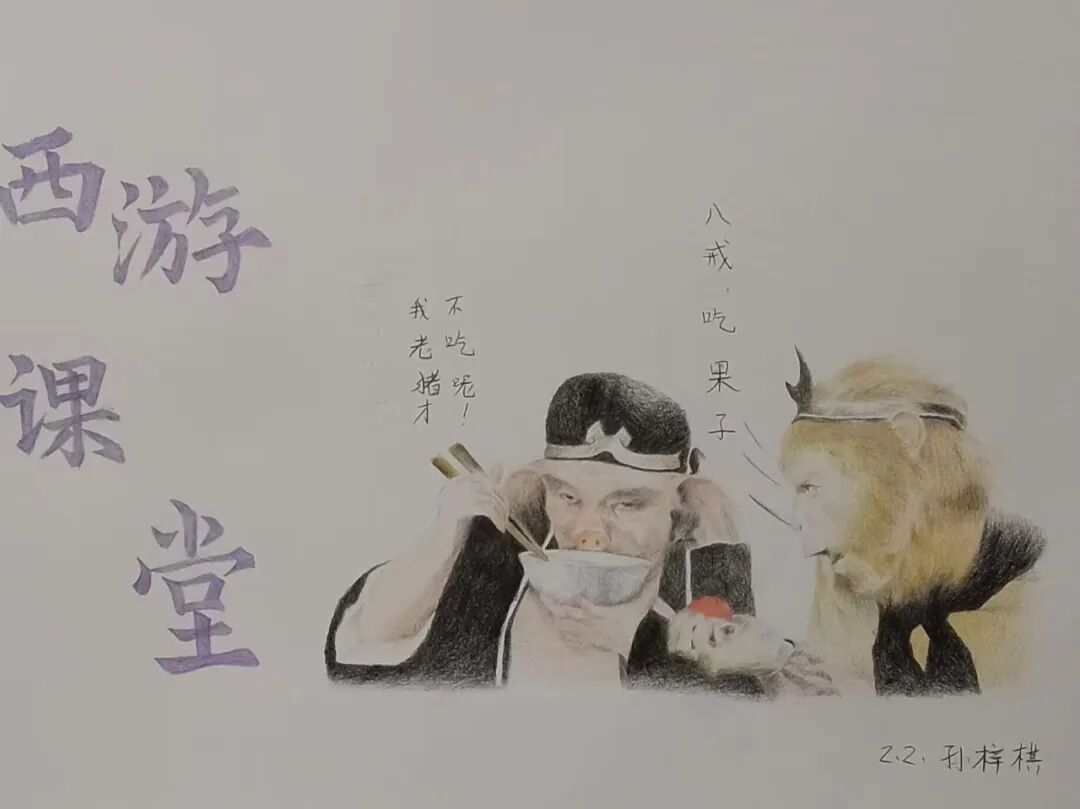 西游
课堂
我老猪才
不吃呢！
八戒，吃果子
2.2. 孙梓棋